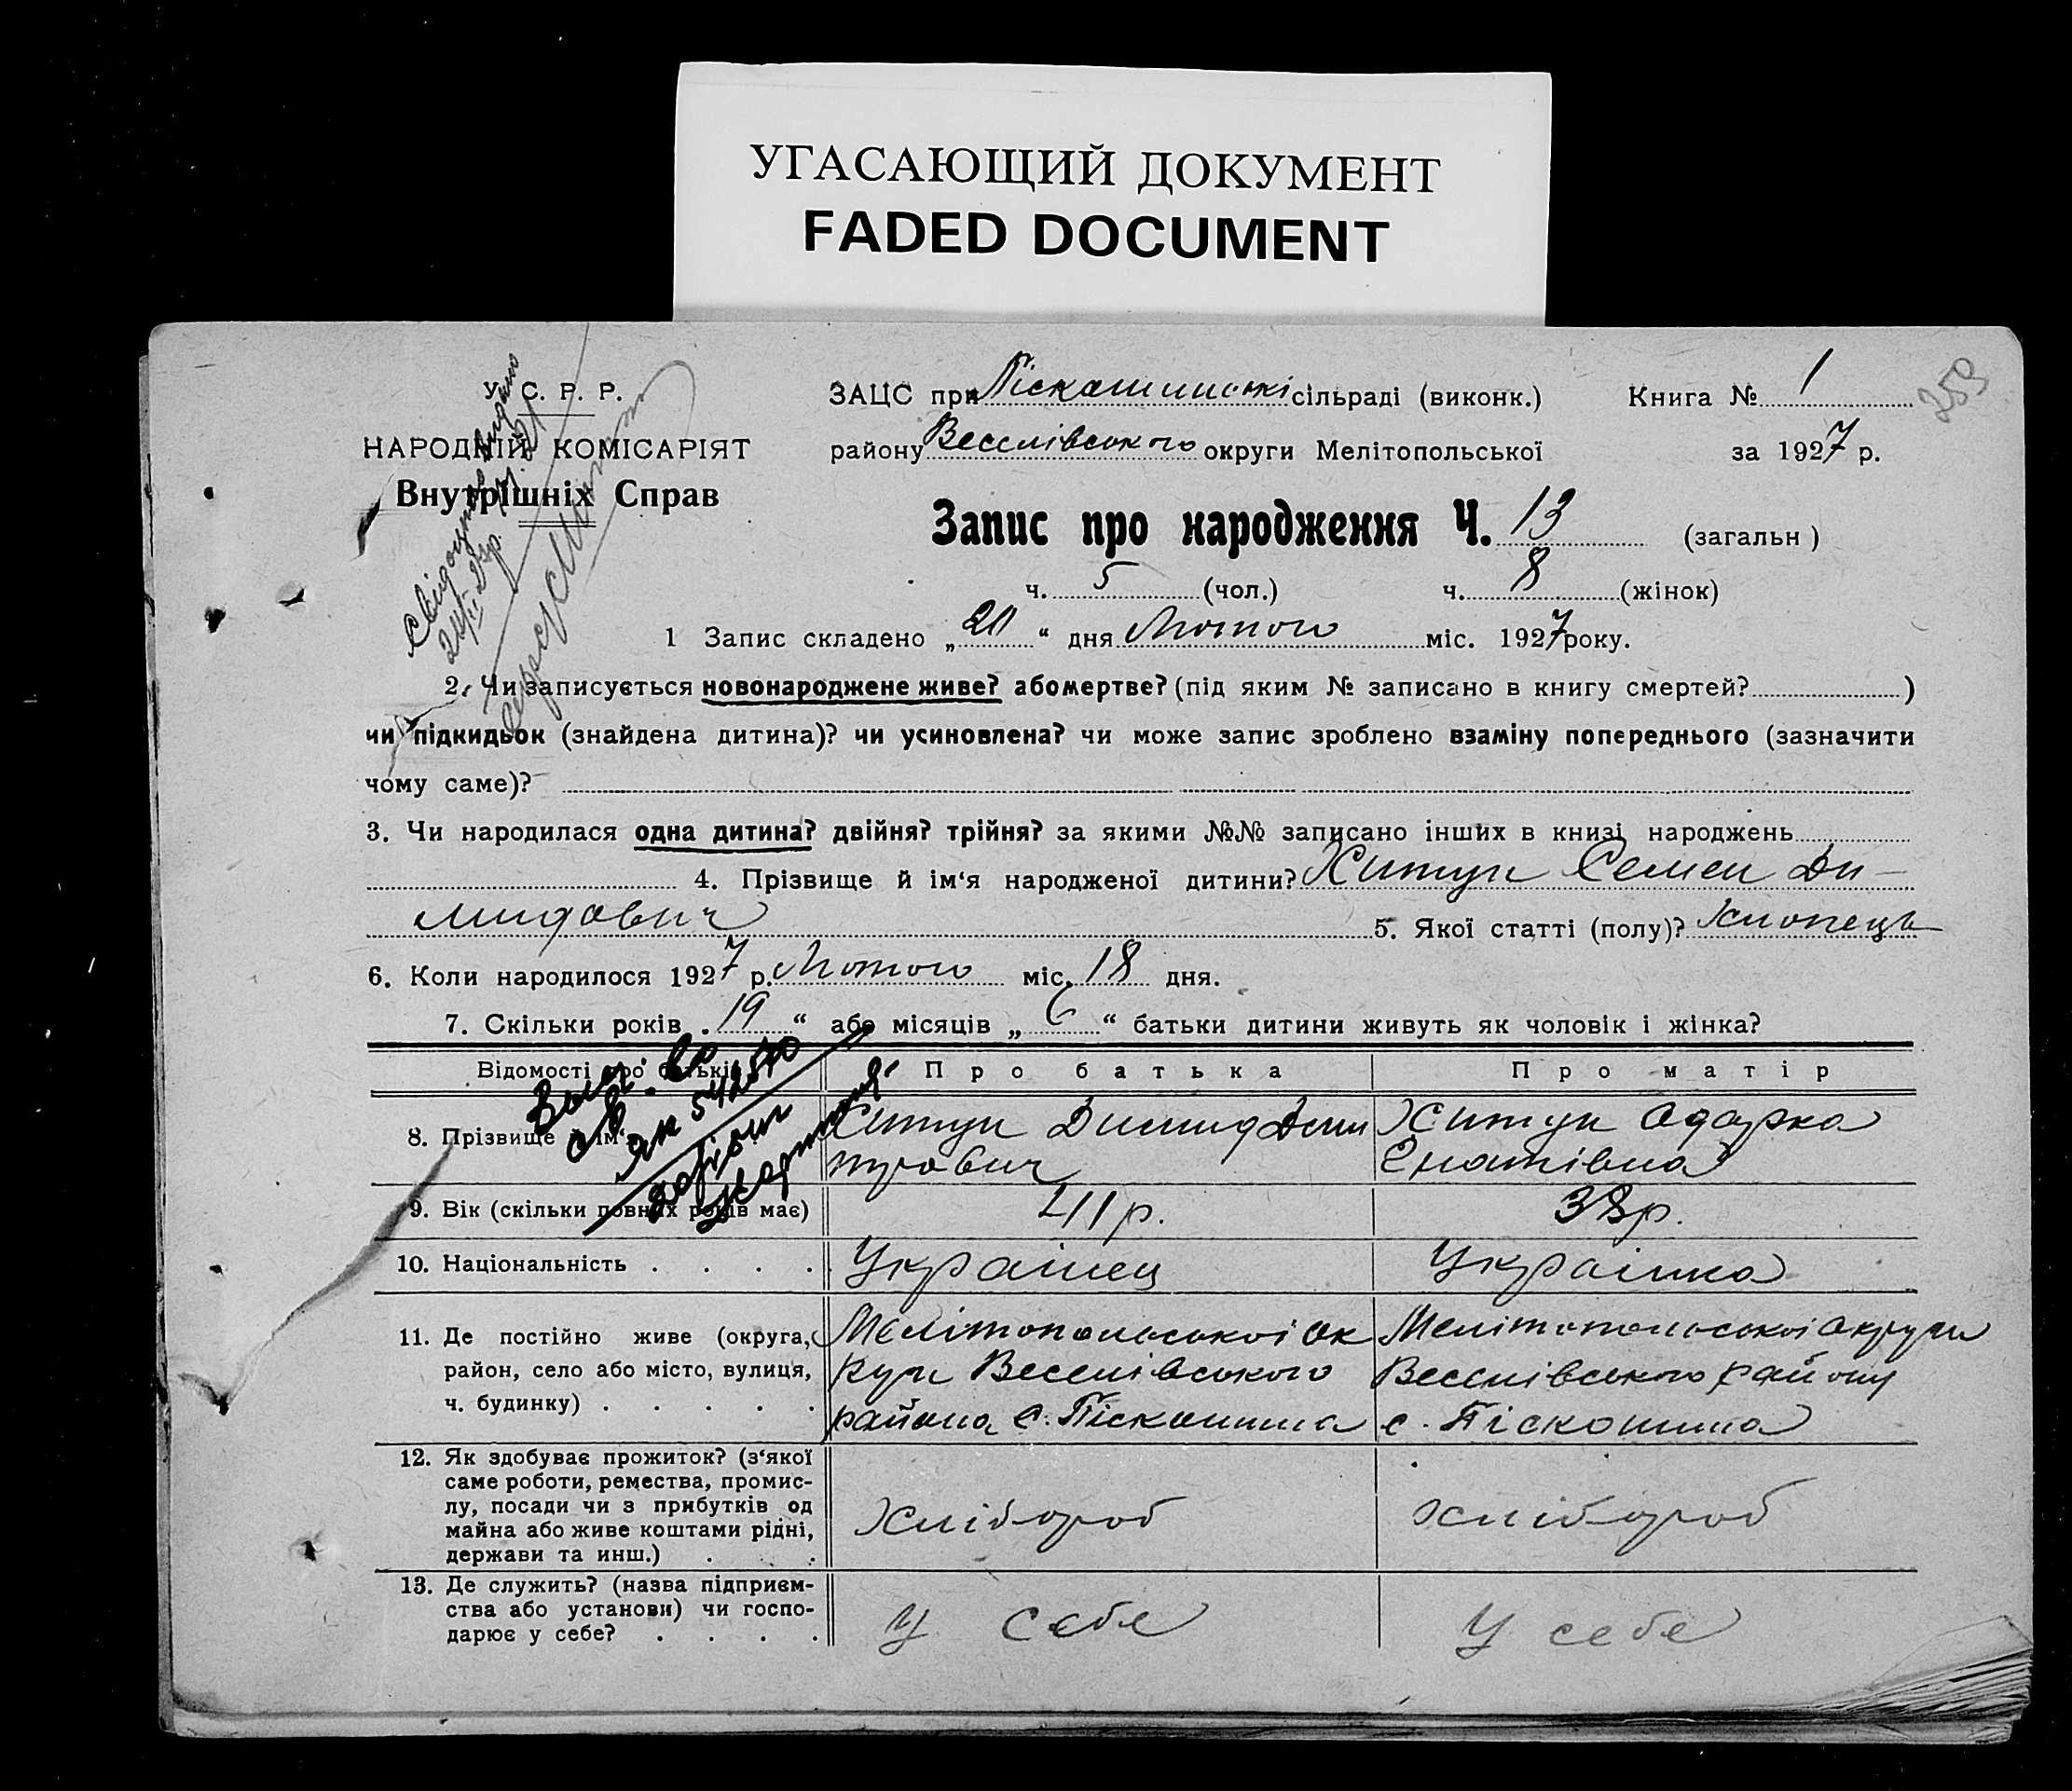 УГАСАЮЩИЙ ДОКУМЕНТ
FADED DOCUMENT
У. С. Р. Р.
НАРОДНІЙ КОМІСАРІЯТ
Внутрішніх Справ
ЗАЦС при Піскошинскі сільраді (виконк.) Книга № 1
району Веселівського округи Мелітопольської за 1927 р.
259
Запис про народження Ч. 13 (загальн )
ч. 5 (чол.) ч. 8 (жінок)
1 Запис складено „ “ дня Лютого міс. 1927 року.
2. Чи записується новонароджене живе? або мертве? (під яким № записано в книгу смертей? )
чи підкидьок (знайдена дитина)? чи усиновлена? чи може запис зроблено взаміну попереднього (зазначити
чому саме)?
3. Чи народилася одна дитина? двійня? трійня? за якими №№ записано інших в книзі народжень
4. Прізвище й ім‘я народженої дитини? Хитун Семен Ди-
мидович 5. Якої статті (полу)? Хлопець
6. Коли народилося 1927 р. Лютого міс. 18 дня.
7. Скільки років „ 19 “ або місяців „ 6 “ батьки дитини живуть як чоловік і жінка?
Відомості про батьків Про батька Про матір
8. Прізвище й ім‘я Хитун Димид Хитун Одарка
Гнатівна
9. Вік (скільки повних років має) 41 р. 38 р.
10. Національність . . . . Українец Українка
11. Де постійно живе (округа, Мелітопольської ок Мелітопольської округи
район, село або місто, вулиця, руги Веселівського Веселівського району
ч. будинку) . . . . . района с. Піскошина с. Піскошина
12. Як здобуває прожиток? (з‘якої
саме роботи, ремества, промис-
лу, посади чи з прибутків од Хлібороб хлібороб
майна або живе коштами рідні,
держави та инш.) . . .
13. Де служить? (назва підприєм-
ства або установи) чи госпо- У себе У себе
дарює у себе? . . . .